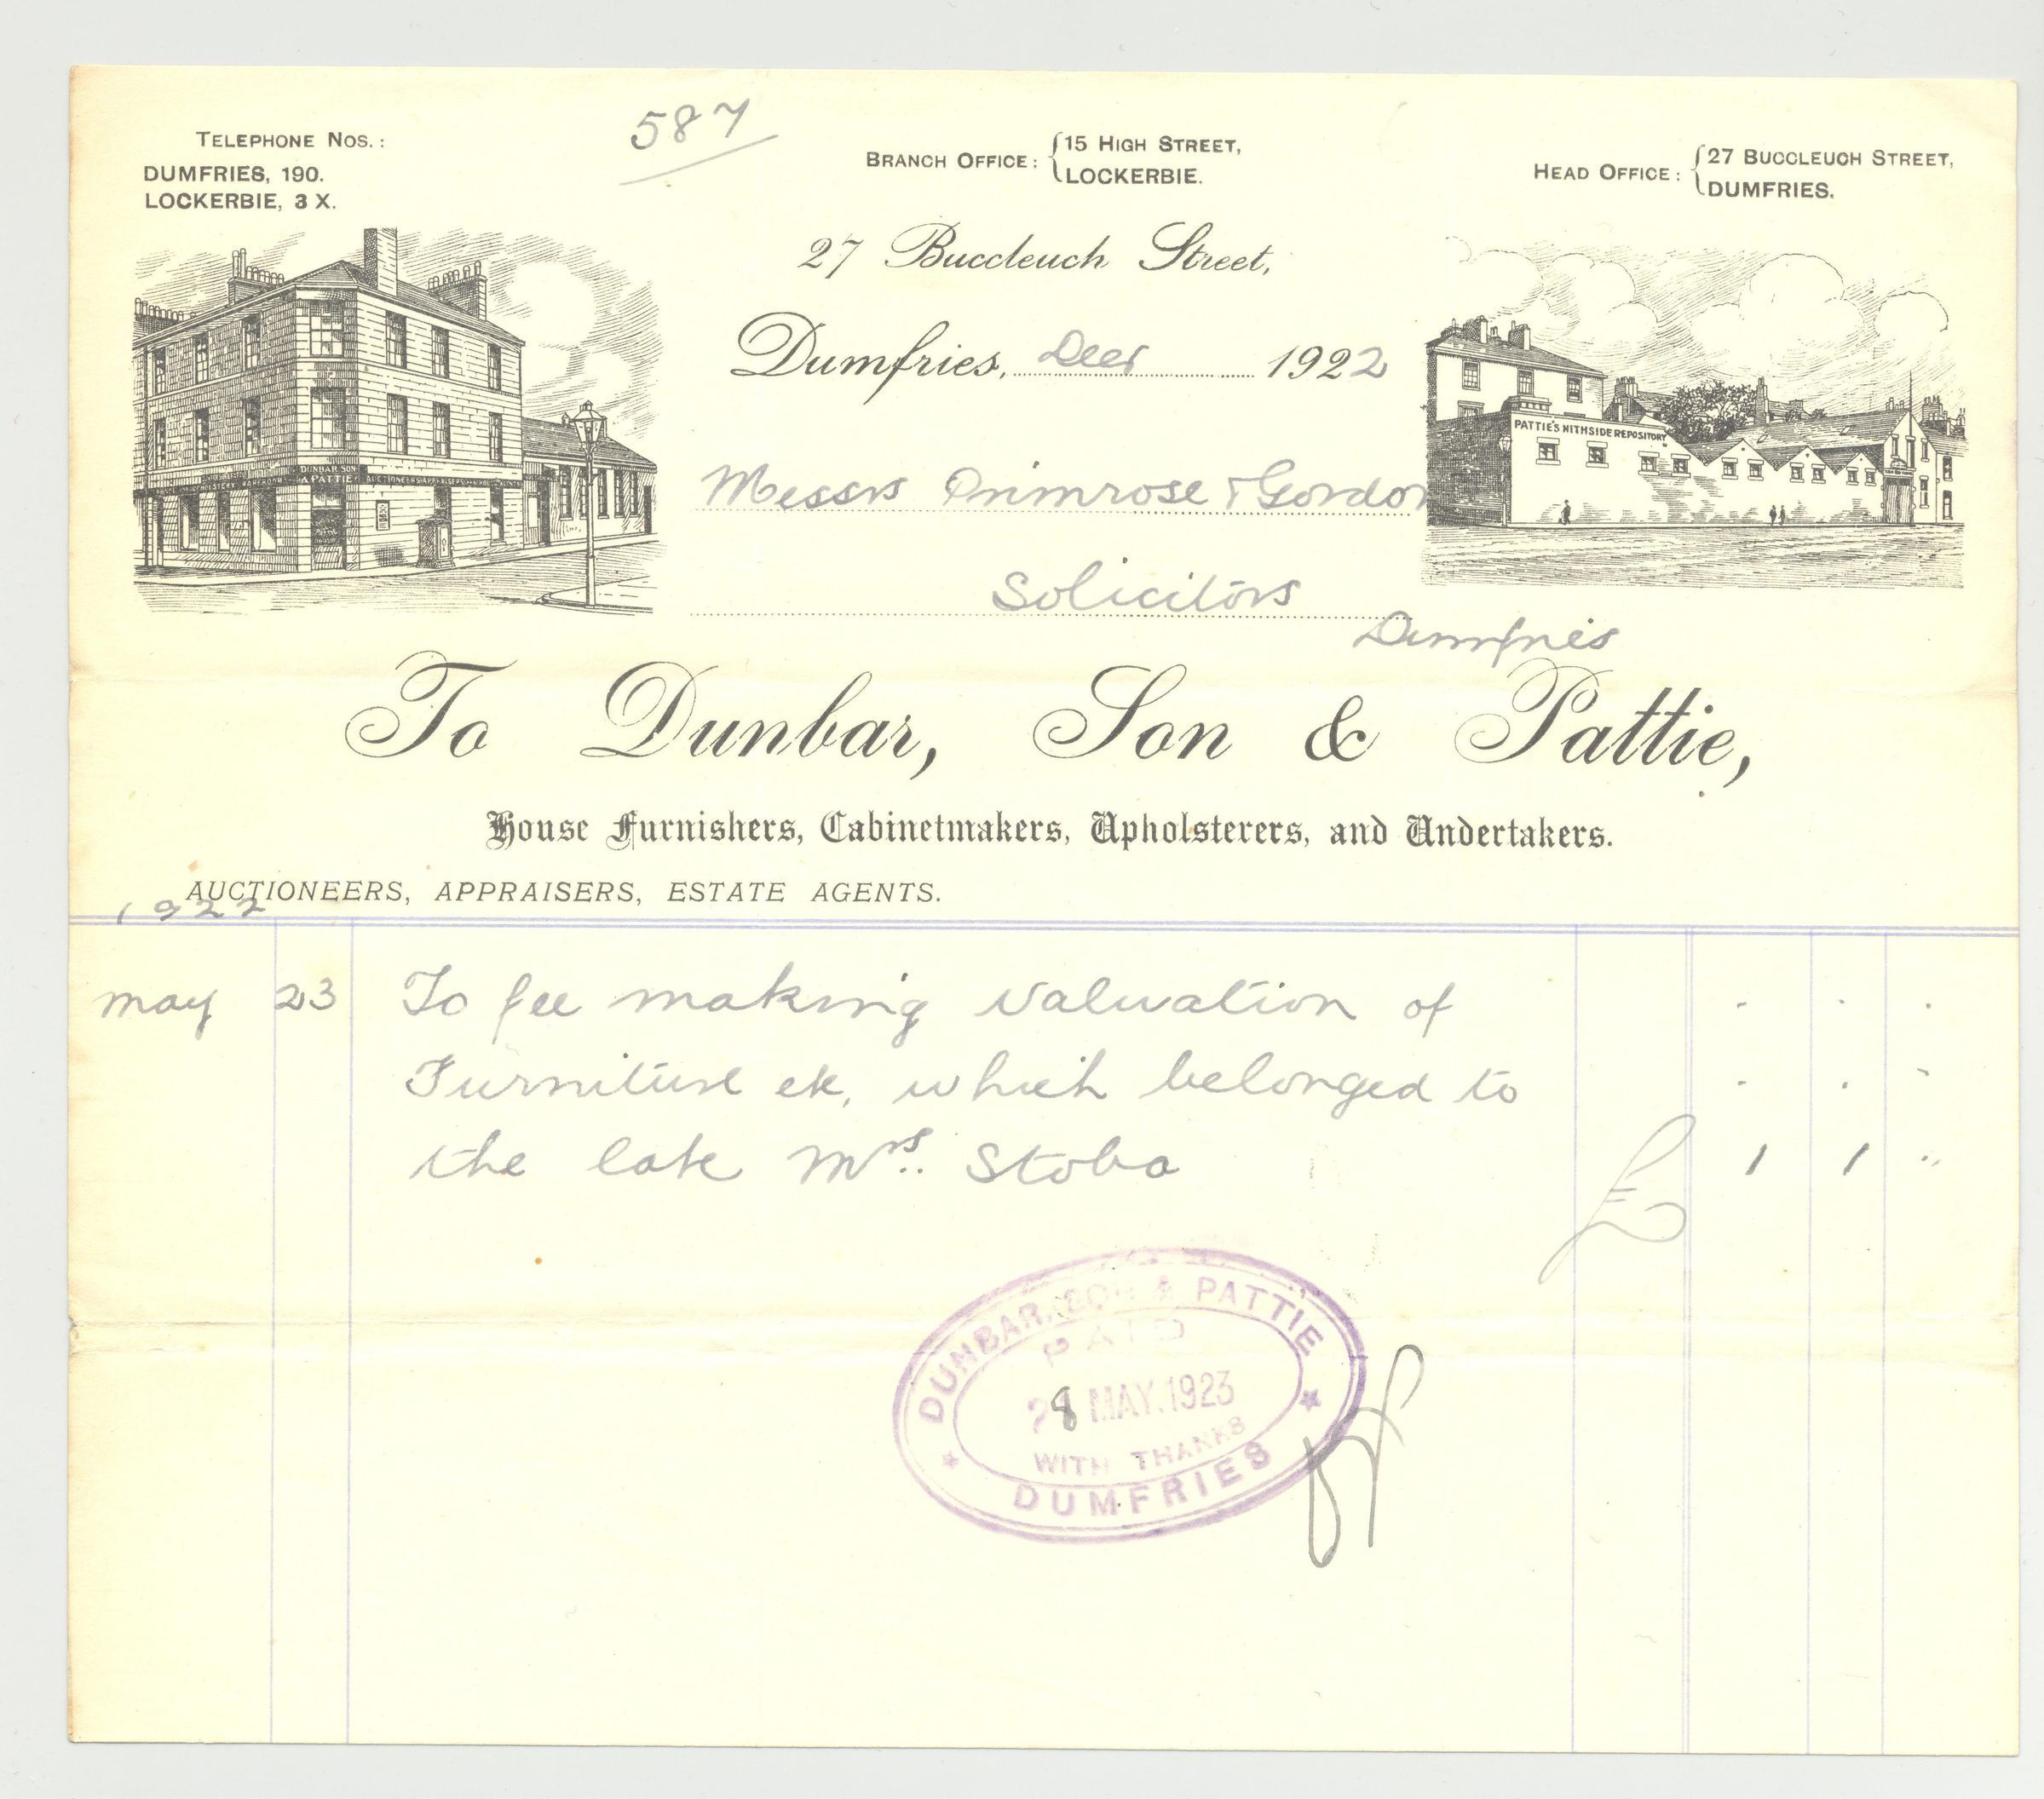 TELEPHONE NOS.:
DUMFRIES, 190.
LOCKERBIE, 3 X.
587
BRANCH OFFICE: 15 HIGH STREET,
LOCKERBIE.
HEAD OFFICE: 27 BUCCLEUCH STREET,
DUMFRIES.
27 Buccleuch Street,
Dumfries, Decr 1922
DUNBAR SON
& PATTIE
AUCTIONEERS
PATTIE'S NITHSIDE REPOSITORY
Messrs Primrose & Gordon
Solicitors
Dumfries
To Dunbar, Son & Pattie,
House Furnishers, Cabinetmakers, Upholsterers, and Undertakers.
AUCTIONEERS, APPRAISERS, ESTATE AGENTS.
1922
May 23 To fee making valuation of
Furniture etc, which belonged to
the late Mrs. Stoba £ 1 1 "
DUNBAR, SON & PATTIE
PAID
28 MAY. 1923
WITH THANKS
DUMFRIES